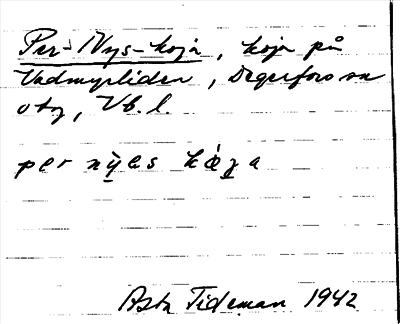 Per-Nys-koja, koja på
Vadmyrliden, Degerfors sn
utg, Vb. l.
per nỳes kò̤ya
Asta Tideman 1942